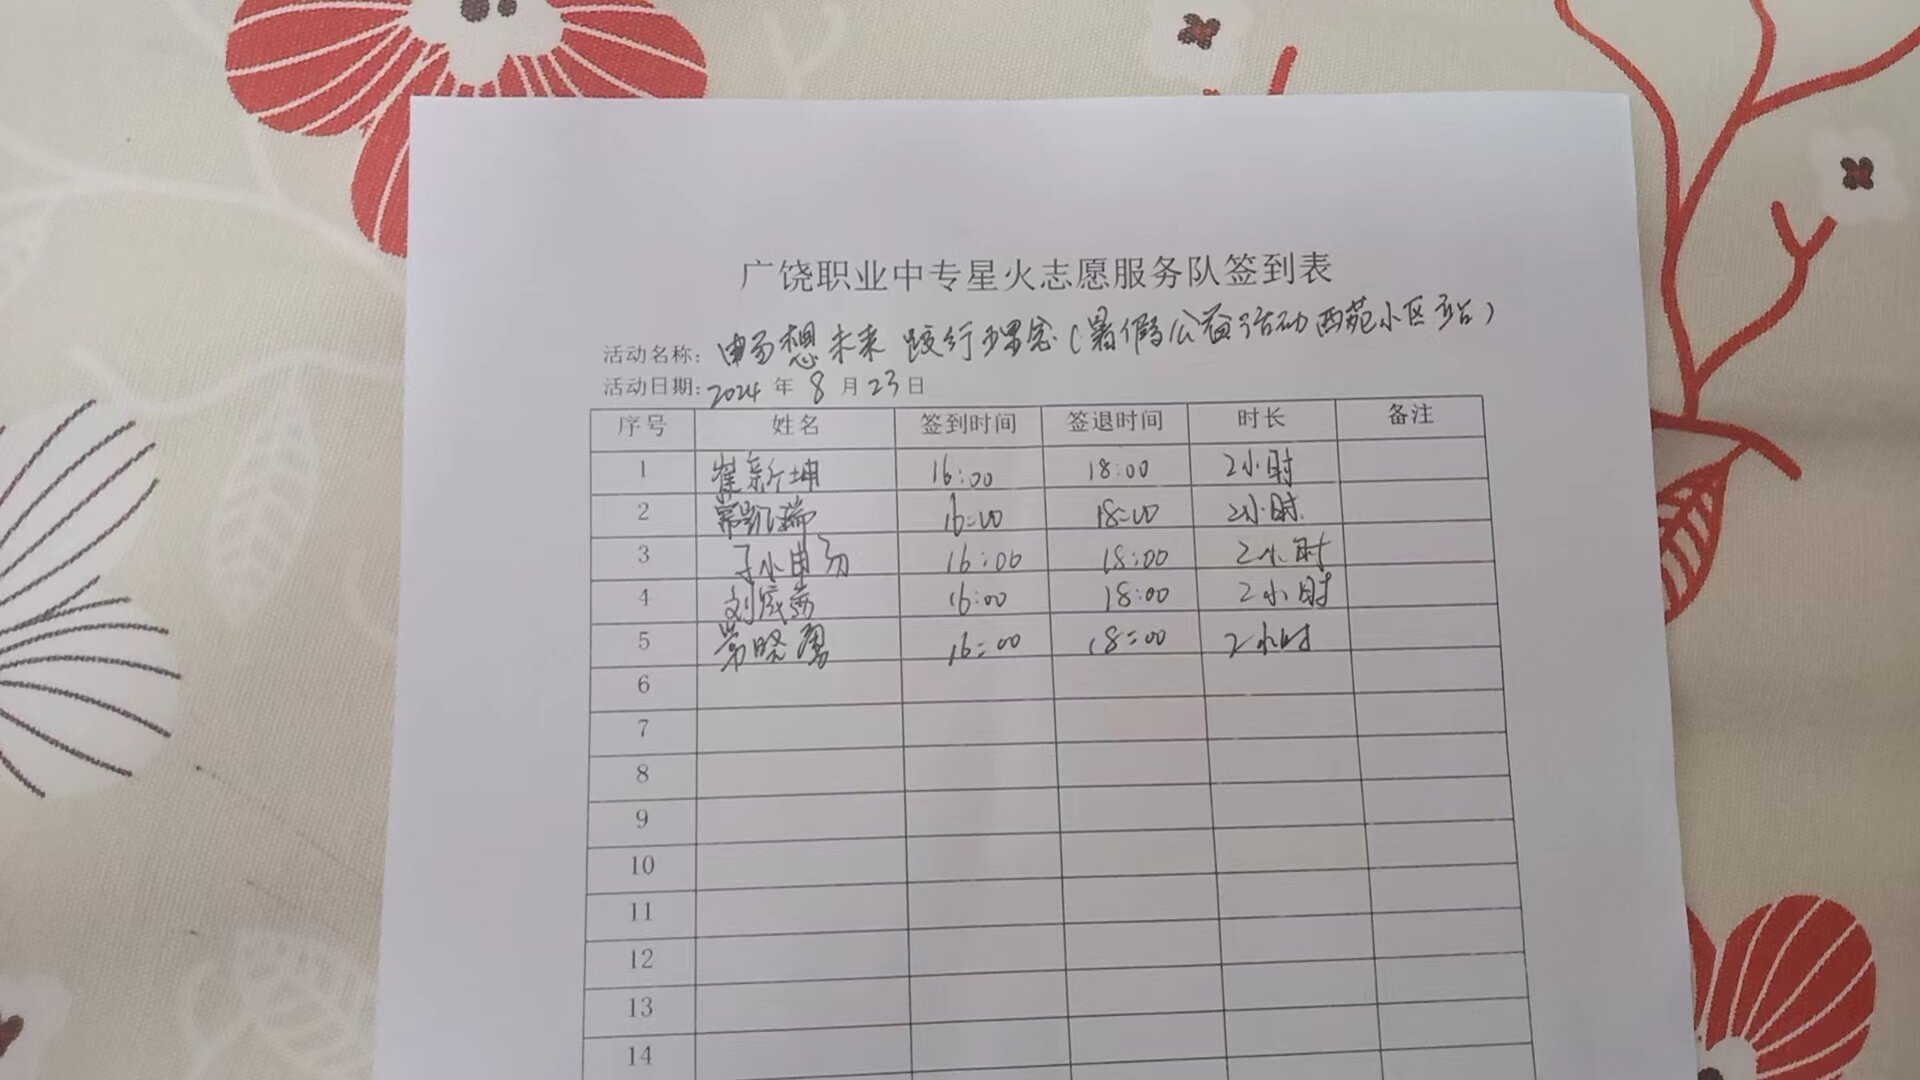 广饶职业中专星火志愿服务队签到表
活动名称: 畅想未来 践行理念(暑假公益活动西苑小区站)
活动日期: 2024 年 8 月 23 日
序号 姓名 签到时间 签退时间 时长 备注
1 崔新坤 16:00 18:00 2小时
2 凯瑞 16:00 18:00 2小时
3 孙畅 16:00 18:00 2小时
4 刘 16:00 18:00 2小时
5 常晓 16:00 18:00 2小时
6
7
8
9
10
11
12
13
14